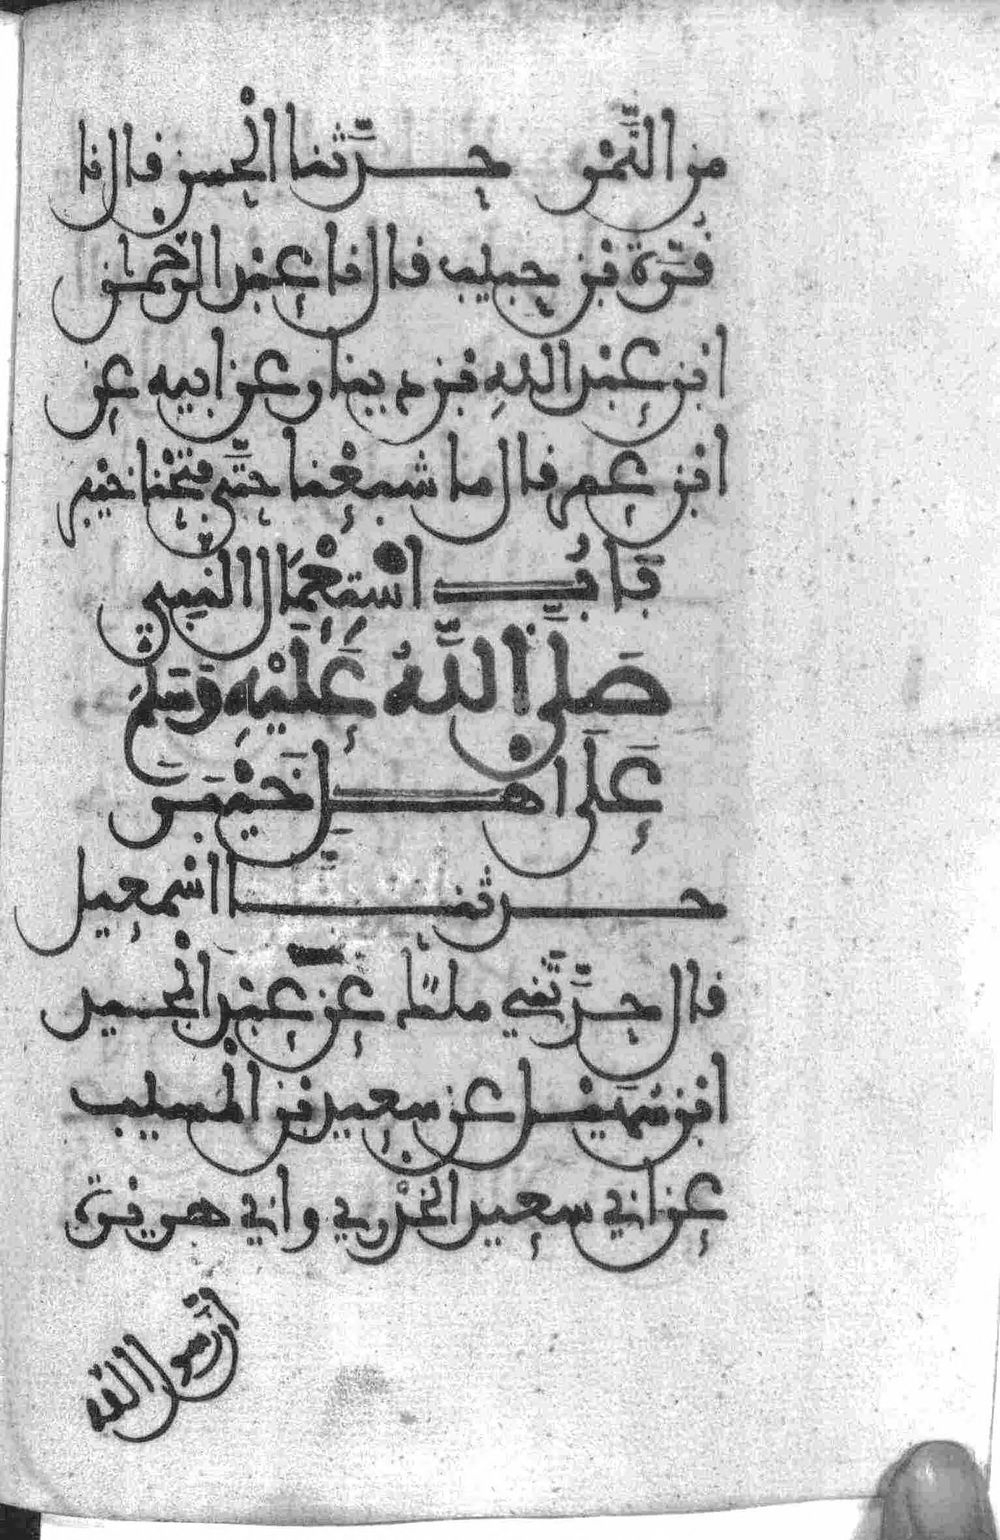 من التَّمْر حدَّثنا الْحسن قال نا
قُرَّة بن حبيب قال نا عبْد الرَّحْمٰن
ابن عبْد اللهِ بن دينار عن ابيه عن
ابن عمر قال ما شبعْنا حتَّى فتحْنا خيْبر
بَابُ اسْتِعْمَال النبي
صَلَّى اللَّهُ عَلَيْهِ وَسَلَّمَ
عَلَى اهْلِ خَيْبَرَ
حدثنا اسْمعيل
قال حدَّثَني ملك عن عبْد الْمجيد
ابن سُهَيْل عن سعيد بن الْمسيب
عن ابي سعيد الخدْري وابي هريرة
ان رسول الله